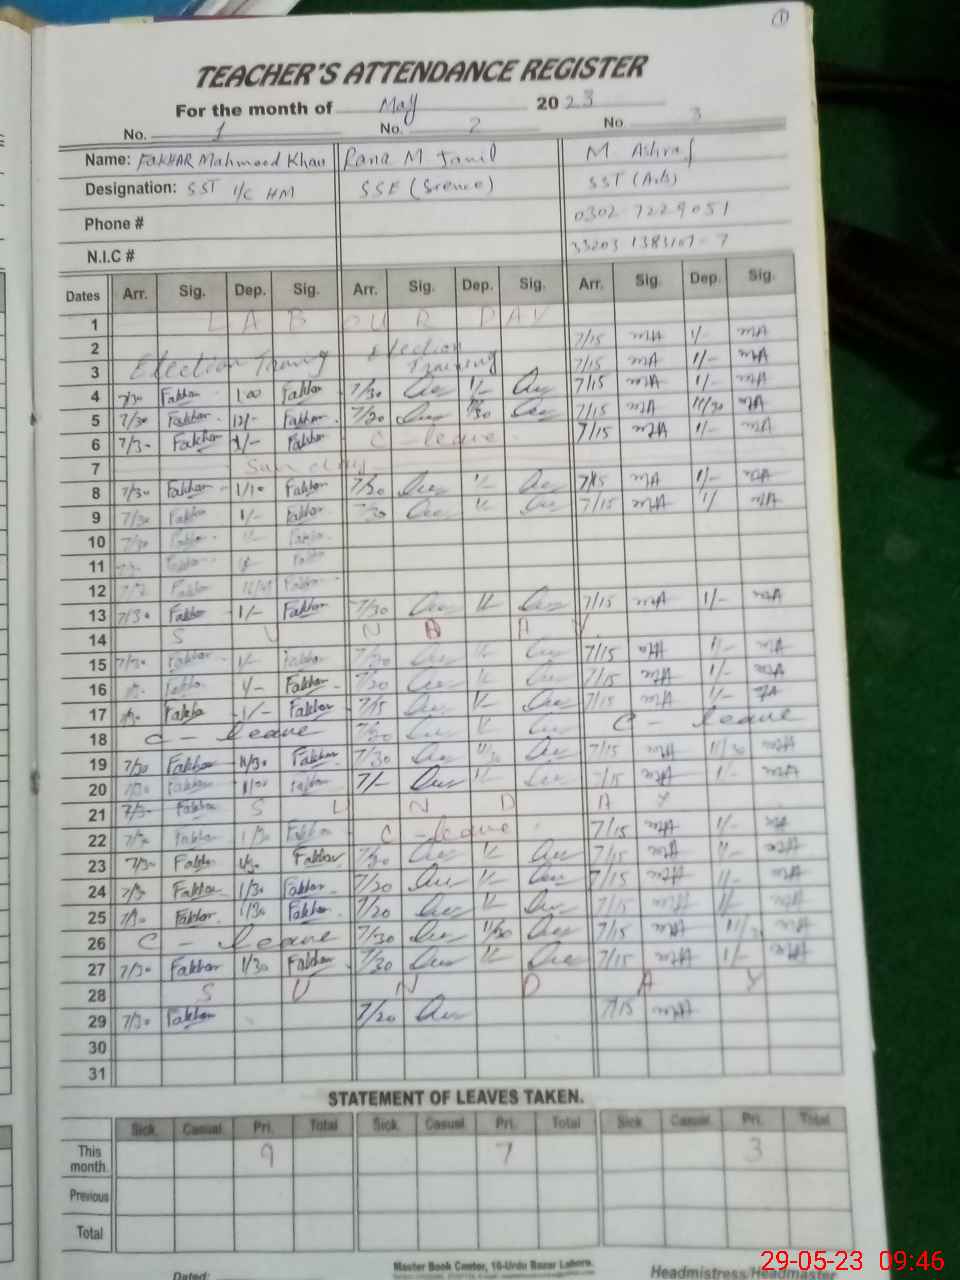 1
TEACHER'S ATTENDANCE REGISTER
For the month of May 2023
No. 1 No. 2 No 3
Name: FAKHAR Mahmood Khan Rana M Jamil M Ashraf
Designation: SST I/C HM SSE (Science) SST (Arts)
Phone # 0302 7229051
N.I.C # 33203 1383107-7
Dates Arr. Sig. Dep. Sig. Arr. Sig. Dep. Sig. Arr. Sig. Dep. Sig.
1 LABOUR DAY
2 7/15 MA 1/- MA
3 Election Training Election Training 7/15 MA 1/- MA
4 7/30 Fakhar 1.00 Fakhar 7/30 1/- 7/15 MA 1/- MA
5 7/30 Fakhar 12/- Fakhar 7/20 7/15 MA 11/30 MA
6 7/30 Fakhar 1/- Fakhar C - leave 7/15 MA 1/- MA
7 Sunday
8 7/30 Fakhar 1/10 Fakhar 7/30 1/- 7/15 MA 1/- MA
9 7/30 Fakhar 1/- Fakhar 7/30 1/- 7/15 MA 1/ MA
10 7/30 Fakhar Fakhar
11 Fakhar Fakhar
12 Fakhar Fakhar
13 7/30 Fakhar 1/- Fakhar 7/30 1/- 7/15 MA 1/- MA
14 S U N D A Y
15 7/30 Fakhar 1/- Fakhar 7/20 1/- 7/15 MA 1/- MA
16 Fakhar 1/- Fakhar 7/20 1/- 7/15 MA 1/- MA
17 Fakhar 1/- Fakhar 7/15 1/- 7/15 MA 1/- MA
18 C - leave 1/- C - leave
19 7/30 Fakhar 11/30 Fakhar 7/30 11/30 7/15 MA MA
20 7/30 Fakhar Fakhar 7/- 1/- 7/15 MA 1/- MA
21 7/30 Fakhar S U N D A Y
22 7/30 Fakhar 1/30 Fakhar C - leave 7/15 MA 1/- MA
23 7/30 Fakhar 1/30 Fakhar 7/20 1/- 7/15 MA 1/- MA
24 7/30 Fakhar 1/30 Fakhar 7/20 1/- 7/15 MA 1/- MA
25 Fakhar 1/30 Fakhar 7/20 1/- 7/15 MA 1/- MA
26 C - leave 7/30 11/30 7/15 MA MA
27 7/30 Fakhar 1/30 Fakhar 7/30 1/- 7/15 MA 1/- MA
28 S U N D A Y
29 7/30 Fakhar 7/20 7/15 MA
30
31
STATEMENT OF LEAVES TAKEN.
Sick. Casual Pri. Total Sick. Casual Pri. Total Sick Casual Pri. Total
This month. 9 7 3
Previous
Total
Dated: Master Book Center, 16-Urdu Bazar Lahore. Headmistress/Headmaster
29-05-23 09:46